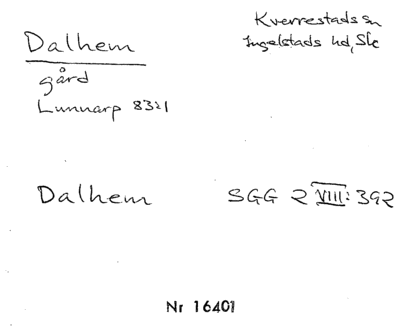 Dalhem
Kverrestads sn
Ingelstads hd, Sk
gård
Lunnarp 83:1
Dalhem SGG 2 VIII: 392
Nr 16401